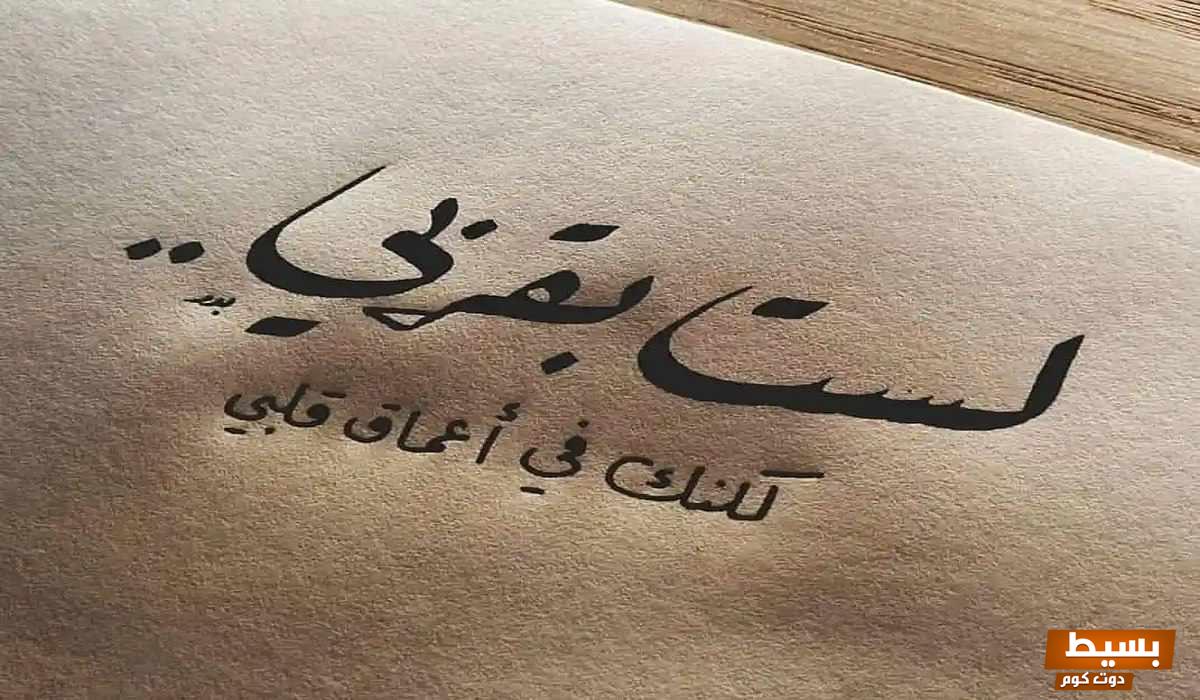 لست بقربي ..
بدر
لكنك في أعماق قلبي
بسيط
دوت كوم